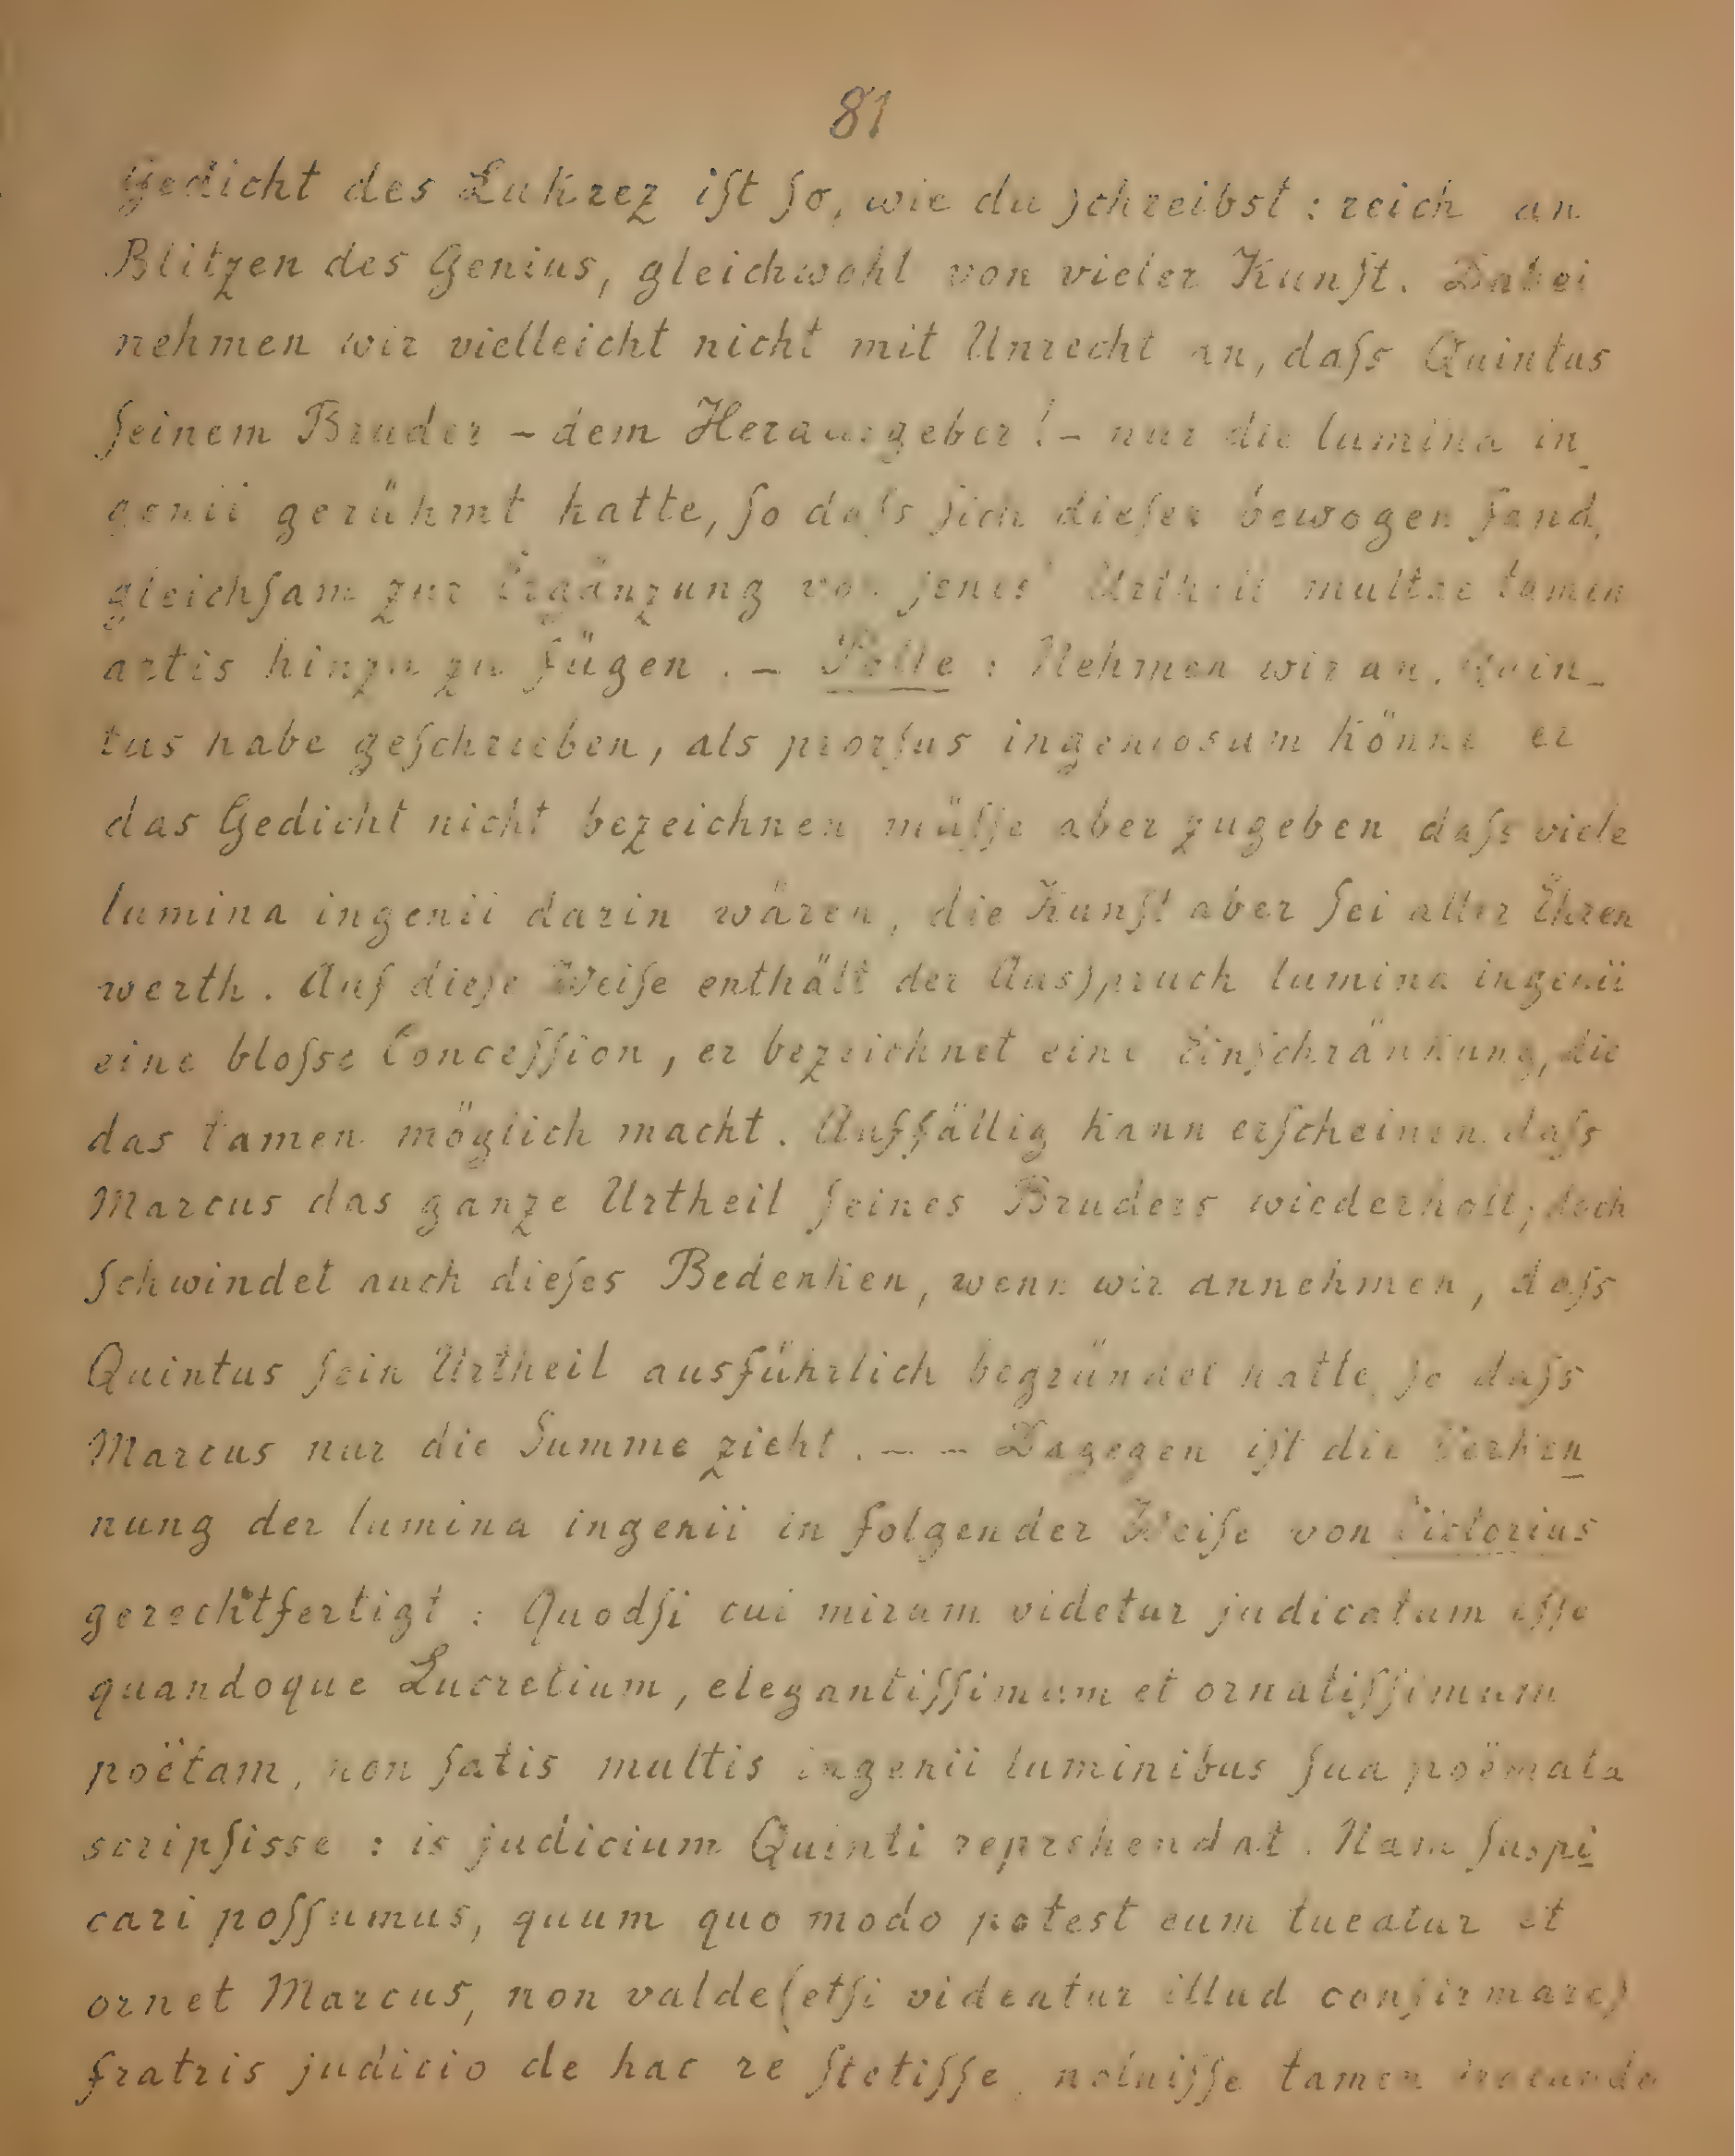 81
Gedicht des Lukrez iſt ſo, wie du ſchreibst : reich an
Blitzen des Genius, gleichwohl von vieler Kunſt. Dabei
nehmen wir vielleicht nicht mit Unrecht an, daſs Quintus
ſeinem Bruder – dem Herausgeber! – nur die lumina in_
genii gerühmt hatte, ſo daſs ſich dieſer bewogen fand,
gleichſam zur Ergänzung von jenes' Urtheil multae tamen
artis hinzu zu fügen . – Polle : Nehmen wir an, Quin_
tus habe geſchrieben, als prorſus ingeniosum könne er
das Gedicht nicht bezeichnen müſſe aber zugeben daſs viele
lumina ingenii darin wären, die Kunſt aber ſei aller Ehren
werth. Auf dieſe Weiſe enthält der Ausſpruch lumina ingenii
eine bloſse Conceſſion, er bezeichnet eine Einſchränkung, die
das tamen möglich macht. Auffällig kann erſcheinen daſs
Marcus das ganze Urtheil ſeines Bruders wiederholt; doch
ſchwindet auch dieſes Bedenken, wenn wir annehmen, daſs
Quintus ſein Urtheil ausführlich begründet hatte, ſo daſs
Marcus nur die Summe zieht. – – Dagegen iſt die Verken_
nung der lumina ingenii in folgender Weiſe von Victorius
gerechtfertigt : Quodſi cui mirum videtur judicatum eſſe
quandoque Lucretium, elegantiſſimum et ornatiſſimum
poëtam, non ſatis multis ingenii luminibus ſua poëmata
scripſisse : is judicium Quinti reprehendat. Nam ſuspi_
cari poſſumus, quum quo modo potest eum tueatur et
ornet Marcus, non valde (etſi videatur illud confirmare)
fratris judicio de hac re ſtetiſſe, noluiſſe tamen